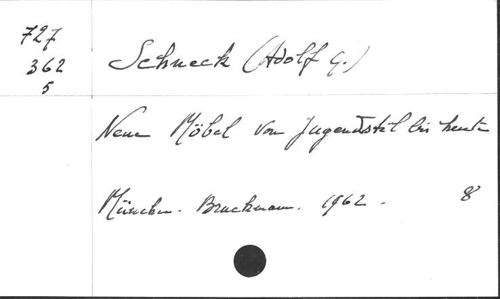 727
362
5
Schneck (Adolf G.)
Neue Möbel vom Jugendstil bis heute
München. Bruckmann. 1962. 8